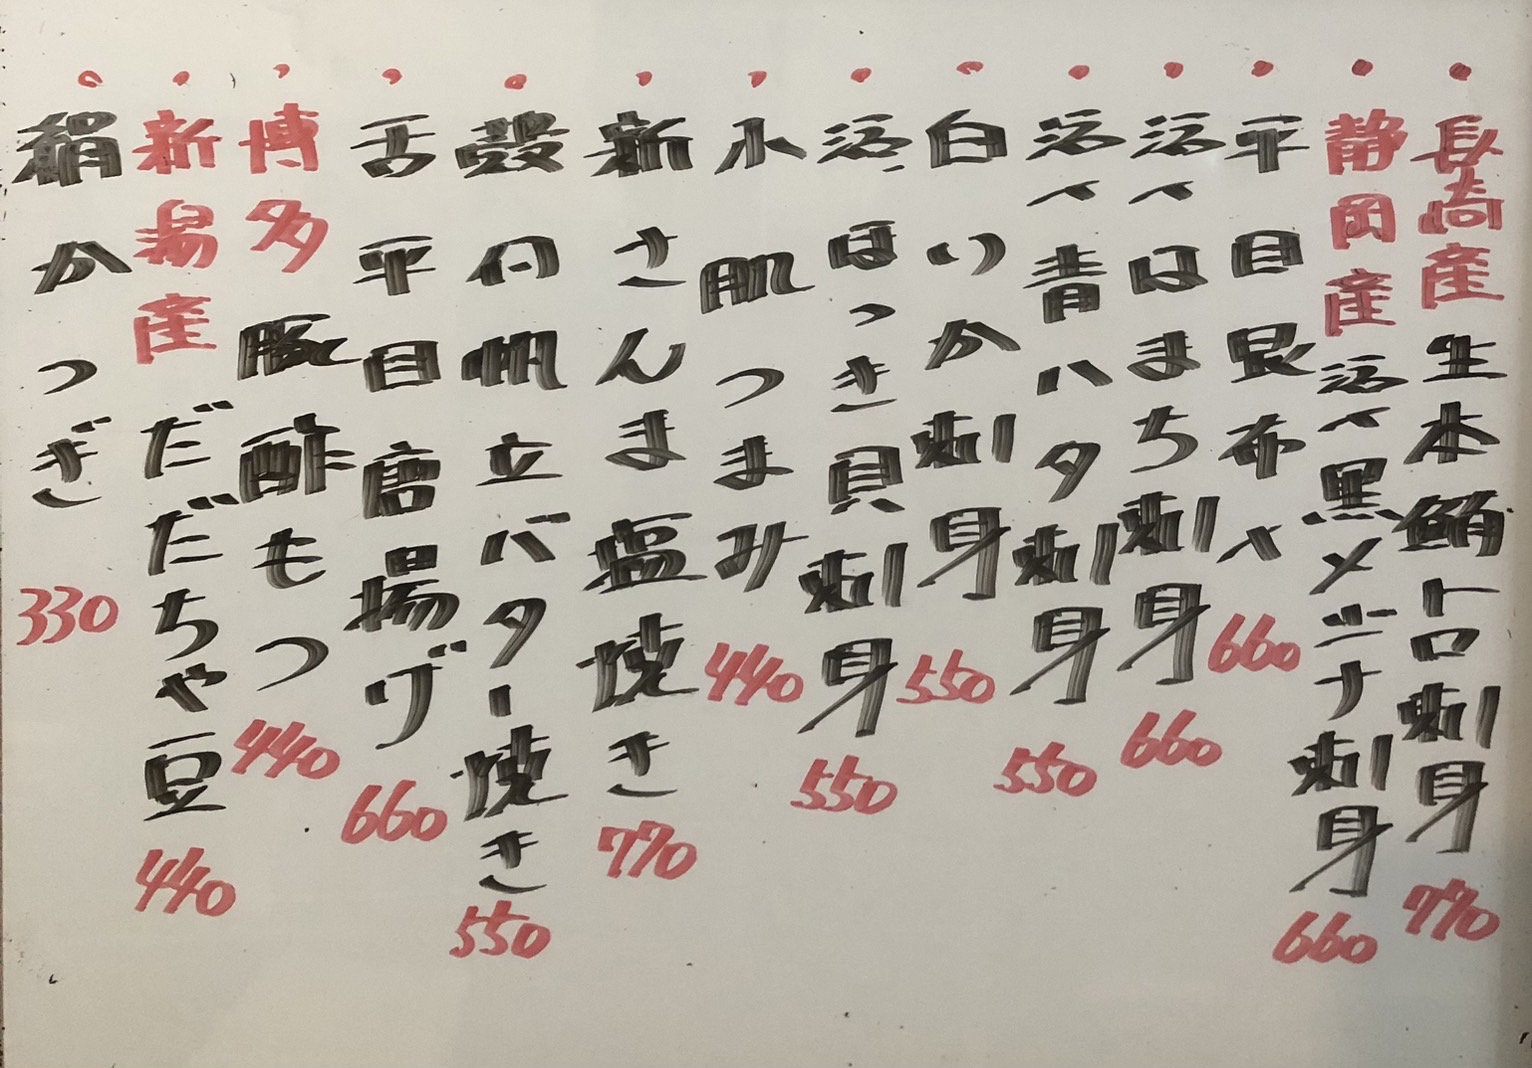 ・長崎産生本鮪トロ刺身 770
・静岡産活〆黒メジナ刺身 660
・平目昆布〆 660
・活〆はまち刺身 660
・活〆青ハタ刺身 550
・白いか刺身 550
・活ほっき貝刺身 550
・小肌つまみ 440
・新さんま塩焼き 770
・殻付帆立バター焼き 550
・舌平目唐揚げ 660
・博多豚酢もつ 440
・新潟産だだちゃ豆 440
・絹かつぎ 330